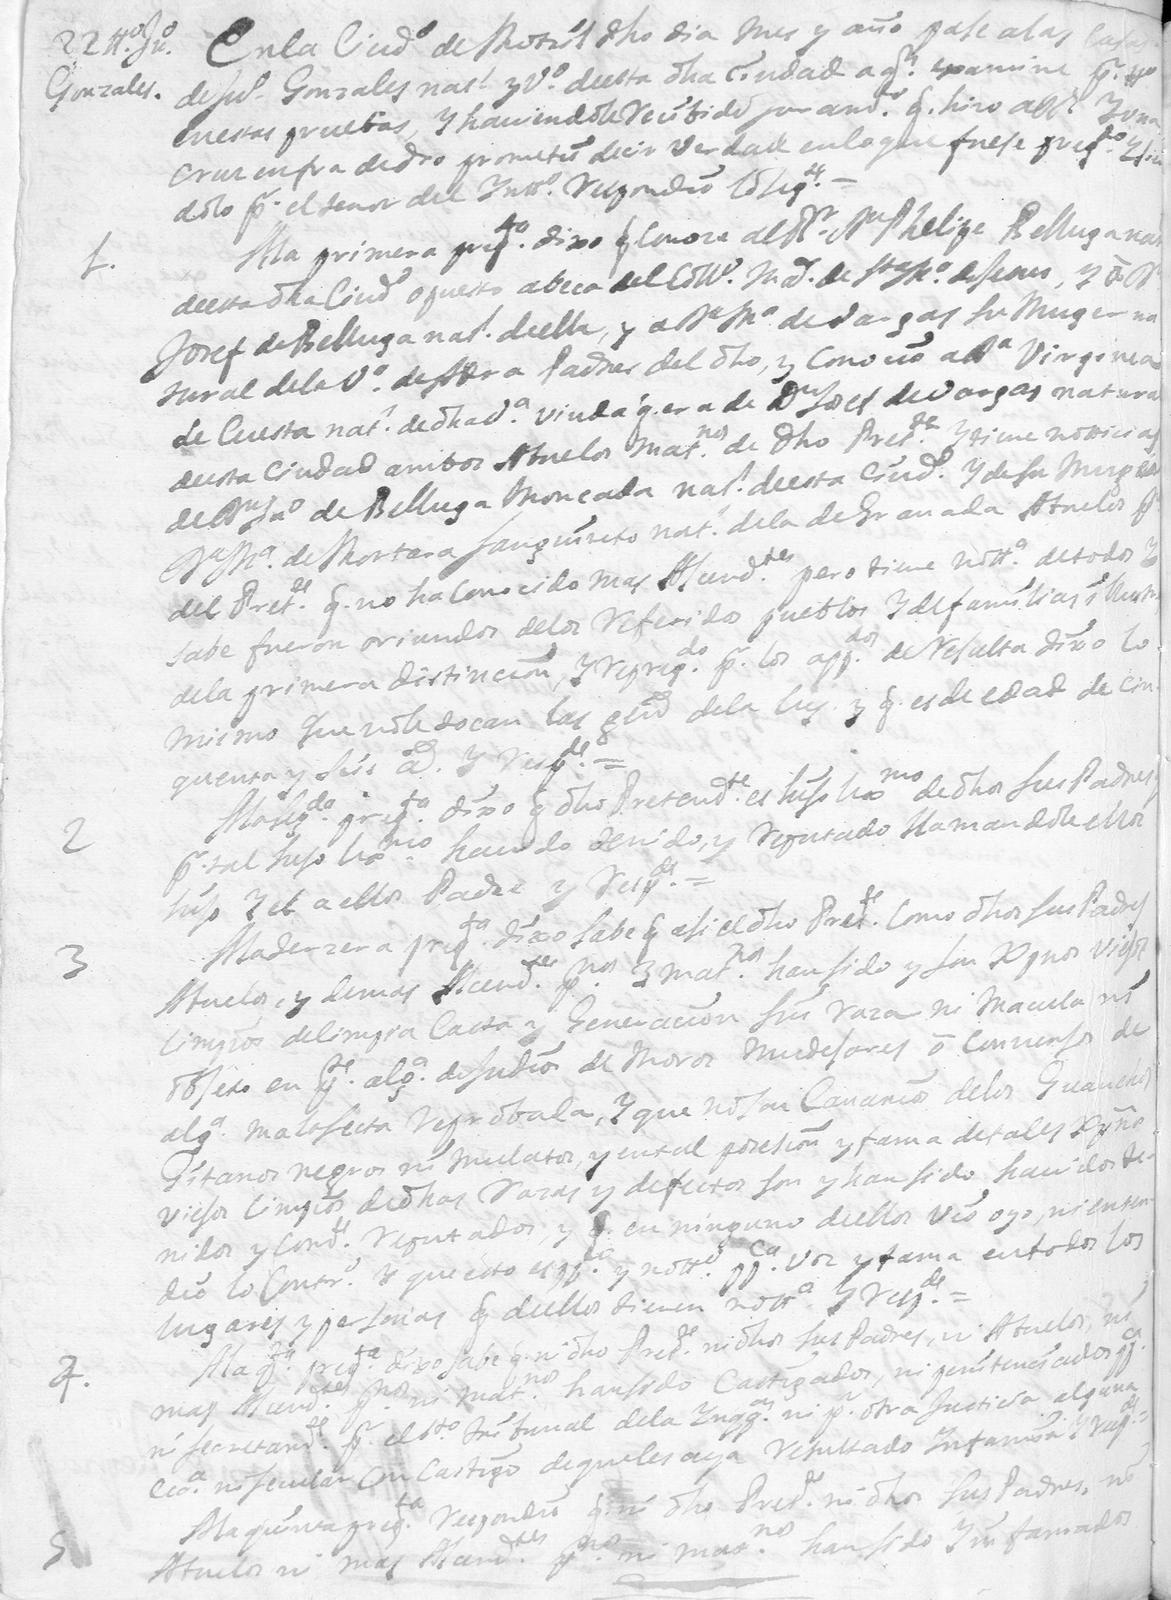 22 tt.º Ju.º
Gonzales.
En la Ciud.d de Motril dho dia mes y año pase a las Casas
de Ju.º Gonzales nat.l y V.º de esta dha ciudad a q.n examine p.r tt.º
en estas pruebas, y haviendole recibido juram.to q. hizo a D.s y una
Cruz en fra de dro prometio decir verdad en lo que fuese preg.do y si
dolo p.r el tenor del Ynttº. respondio lo sig.te =
1. A la primera preg.ta dixo q Conoce al S.r D.n Phelipe Belluga nat
de esta dha Ciud.d opuesto a beca del Coll.º Ma.r de Sta Mª. de Jesus, y a D.n
Josef de Belluga nat.l de ella, y a D.ª M.ª de Vargas su Muger na
tural de la V.ª de Padres del dho, y Conocio a D.ª Virginia
de Cuesta nat.l de dha V.ª viuda q. era de D.n Josef de Vargas natural
de esta Ciudad ambos Abuelos Mat.nos de dho Pret.te Y tiene noticias
de D.n Ju.º de Belluga Moncada nat.l de esta Ciud.d Y de su Muger
D.ª M.ª de Mortara Sanguineto nat.l de la de Granada Abuelos p.
del Pret.te q. no ha Conocido mas Ascend.tes pero tiene nott.ª de todos Y
sabe fueron oriundos de los referidos pueblos Y de familias ilustr
de la primera distincion, Y repreg.do p.r los app.dos de resulta dixo lo
mismo que no le tocan las gen.s de la ley. y q. es de edad de cin
quenta y seis a.s Y resp.de =
2 A la seg.da preg.ta dixo q dho Pretend.te es hijo lix.mo de dhos sus Padres,
p.r tal hijo lix.mo havido tenido, y reputado llamandole ellos
hijo Y el a ellos Padre y resp.de =
3 A la terzera preg.ta dixo sabe q asi el dho Pret.te Como dhos sus Padres
Abuelos, y demas Ascend.tes p.nos Y mat.nos han sido y son Xpnos viejos
limpios de limpia Casta y Generacion sin raza ni Macula ni
objeto en p.te alg.ª de Judios de Moros Mudejares ō Conversos de
alg.ª mala secta reprobada, Y que no son Canarios de los Guanches
Gitanos negros ni mulatos, y en tal posesion y fama de tales Xpño
viejos limpios de dhas razas y defectos son y han sido havidos te
nidos y Com.te reputados, y q. en ninguno de ellos vio oyo, ni enten
dio lo Contr.º Y que esto es pp.ca y nott.º pp.ca voz y fama en todos los
lugares y personas q de ellos tienen nott.ª Y resp.de =
4. A la q.ta preg.ta dixo sabe q. ni dho Pret.te ni dhos sus Padres, ni Abuelos, ni
mas Ascend.tes p.nos ni mat.nos han sido Castigados, ni penitenciados pp.ca
ni secretam.te p.r el S.to Tribunal de la Ynqq.on ni p.r otra Justicia alguna
ecc.ª ni secular Con Castigo de que les aya resultado Infamia Y resp.de =
5 A la quinta preg.ta respondio q. ni dho Pret.te ni dhos sus Padres, ni
Abuelos ni mas Ascend.tes p.nos ni mat.nos han sido Ynfamados